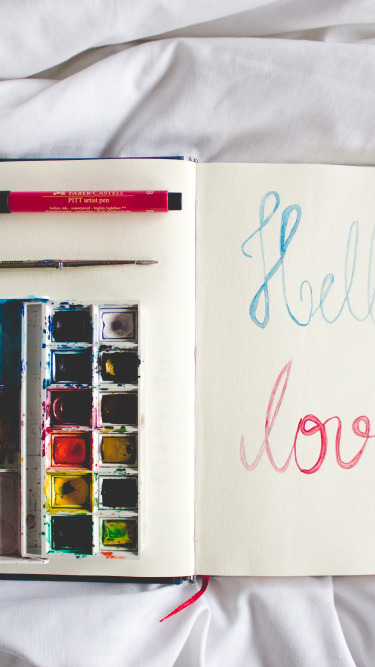 FABER-CASTELL
PITT artist pen
Hell
lov